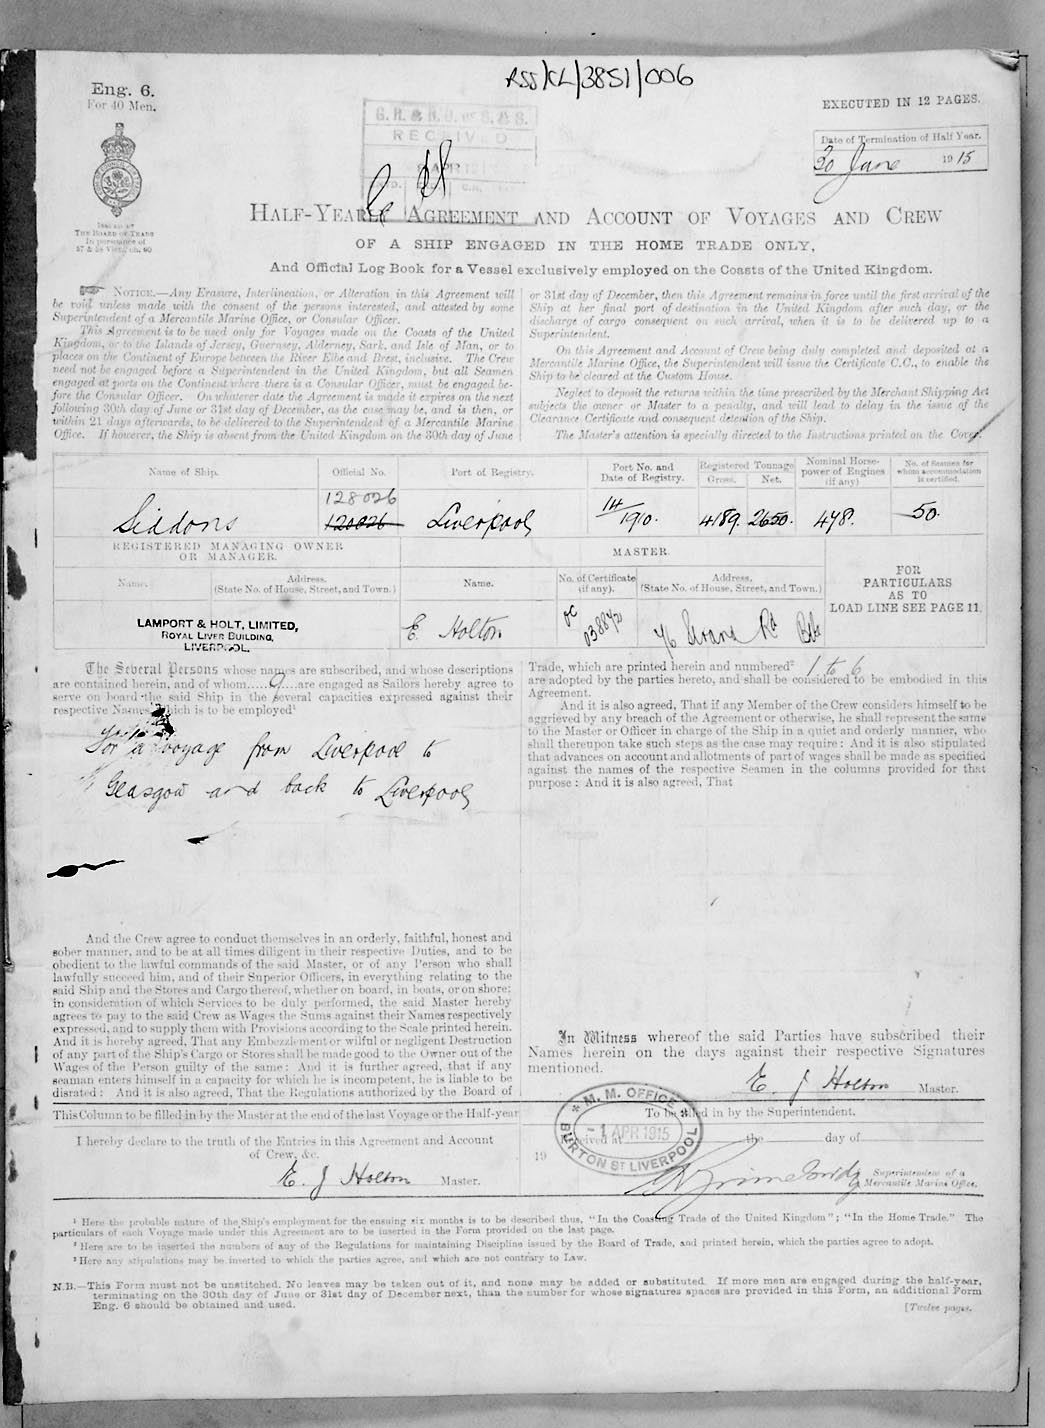 RSS/CL/3851/006
Eng. 6.
For 40 Men.
EXECUTED IN 12 PAGES.
RECEIVED
APR
Date of Termination of Half Year.
30 June 1915
ISSUED BY
THE BOARD OF TRADE
In pursuance of
57 & 58 Vict., ch. 60
HALF-YEARLY AGREEMENT AND ACCOUNT OF VOYAGES AND CREW
OF A SHIP ENGAGED IN THE HOME TRADE ONLY,
And Official Log Book for a Vessel exclusively employed on the Coasts of the United Kingdom.
NOTICE.—Any Erasure, Interlineation, or Alteration in this Agreement will
be void unless made with the consent of the persons interested, and attested by some
Superintendent of a Mercantile Marine Office, or Consular Officer.
This Agreement is to be used only for Voyages made on the Coasts of the United
Kingdom, or to the Islands of Jersey, Guernsey, Alderney, Sark, and Isle of Man, or to
places on the Continent of Europe between the River Elbe and Brest, inclusive. The Crew
need not be engaged before a Superintendent in the United Kingdom, but all Seamen
engaged at ports on the Continent where there is a Consular Officer, must be engaged be-
fore the Consular Officer. On whatever date the Agreement is made it expires on the next
following 30th day of June or 31st day of December, as the case may be, and is then, or
within 21 days afterwards, to be delivered to the Superintendent of a Mercantile Marine
Office. If however, the Ship is absent from the United Kingdom on the 30th day of June
or 31st day of December, then this Agreement remains in force until the first arrival of the
Ship at her final port of destination in the United Kingdom after such day, or the
discharge of cargo consequent on such arrival, when it is to be delivered up to a
Superintendent.
On this Agreement and Account of Crew being duly completed and deposited at a
Mercantile Marine Office, the Superintendent will issue the Certificate C.C., to enable the
Ship to be cleared at the Custom House.
Neglect to deposit the returns within the time prescribed by the Merchant Shipping Act
subjects the owner or Master to a penalty, and will lead to delay in the issue of the
Clearance Certificate and consequent detention of the Ship.
The Master's attention is specially directed to the Instructions printed on the Cover.
Name of Ship. Official No. Port of Registry. Port No. and Date of Registry. Registered Tonnage Gross. Net. Nominal Horse-power of Engines (if any) No. of Seamen for whom accommodation is certified.
128026
Siddons 120026 Liverpool 14/1910. 4189. 2650. 478. 50.
REGISTERED MANAGING OWNER
OR MANAGER.
MASTER.
Name. Address. (State No. of House, Street, and Town.) Name. No. of Certificate (if any). Address. (State No. of House, Street, and Town.)
FOR
PARTICULARS
AS TO
LOAD LINE SEE PAGE 11.
LAMPORT & HOLT, LIMITED,
ROYAL LIVER BUILDING,
LIVERPOOL.
E. Holton
The Several Persons whose names are subscribed, and whose descriptions
are contained herein, and of whom 9 are engaged as Sailors hereby agree to
serve on board the said Ship in the several capacities expressed against their
respective Names, which is to be employed¹
For a voyage from Liverpool to
Glasgow and back to Liverpool
And the Crew agree to conduct themselves in an orderly, faithful, honest and
sober manner, and to be at all times diligent in their respective Duties, and to be
obedient to the lawful commands of the said Master, or of any Person who shall
lawfully succeed him, and of their Superior Officers, in everything relating to the
said Ship and the Stores and Cargo thereof, whether on board, in boats, or on shore:
in consideration of which Services to be duly performed, the said Master hereby
agrees to pay to the said Crew as Wages the Sums against their Names respectively
expressed, and to supply them with Provisions according to the Scale printed herein.
And it is hereby agreed, That any Embezzlement or wilful or negligent Destruction
of any part of the Ship's Cargo or Stores shall be made good to the Owner out of the
Wages of the Person guilty of the same: And it is further agreed, that if any
seaman enters himself in a capacity for which he is incompetent, he is liable to be
disrated: And it is also agreed, That the Regulations authorized by the Board of
Trade, which are printed herein and numbered² 1 to 6
are adopted by the parties hereto, and shall be considered to be embodied in this
Agreement.
And it is also agreed, That if any Member of the Crew considers himself to be
aggrieved by any breach of the Agreement or otherwise, he shall represent the same
to the Master or Officer in charge of the Ship in a quiet and orderly manner, who
shall thereupon take such steps as the case may require: And it is also stipulated
that advances on account and allotments of part of wages shall be made as specified
against the names of the respective Seamen in the columns provided for that
purpose: And it is also agreed, That
In Witness whereof the said Parties have subscribed their
Names herein on the days against their respective Signatures
mentioned.
E. J Holton Master.
This Column to be filled in by the Master at the end of the last Voyage or the Half-year
I hereby declare to the truth of the Entries in this Agreement and Account
of Crew, &c.
E. J Holton Master.
To be filled in by the Superintendent.
Received at the day of
19
M. M. OFFICE
-1 APR 1915
BURTON ST LIVERPOOL
Superintendent of a
Mercantile Marine Office.
¹ Here the probable nature of the Ship's employment for the ensuing six months is to be described thus, "In the Coasting Trade of the United Kingdom"; "In the Home Trade." The
particulars of each Voyage made under this Agreement are to be inserted in the Form provided on the last page.
² Here are to be inserted the numbers of any of the Regulations for maintaining Discipline issued by the Board of Trade, and printed herein, which the parties agree to adopt.
³ Here any stipulations may be inserted to which the parties agree, and which are not contrary to Law.
N.B.—This Form must not be unstitched. No leaves may be taken out of it, and none may be added or substituted. If more men are engaged during the half-year,
terminating on the 30th day of June or 31st day of December next, than the number for whose signatures spaces are provided in this Form, an additional Form
Eng. 6 should be obtained and used.
[Twelve pages.